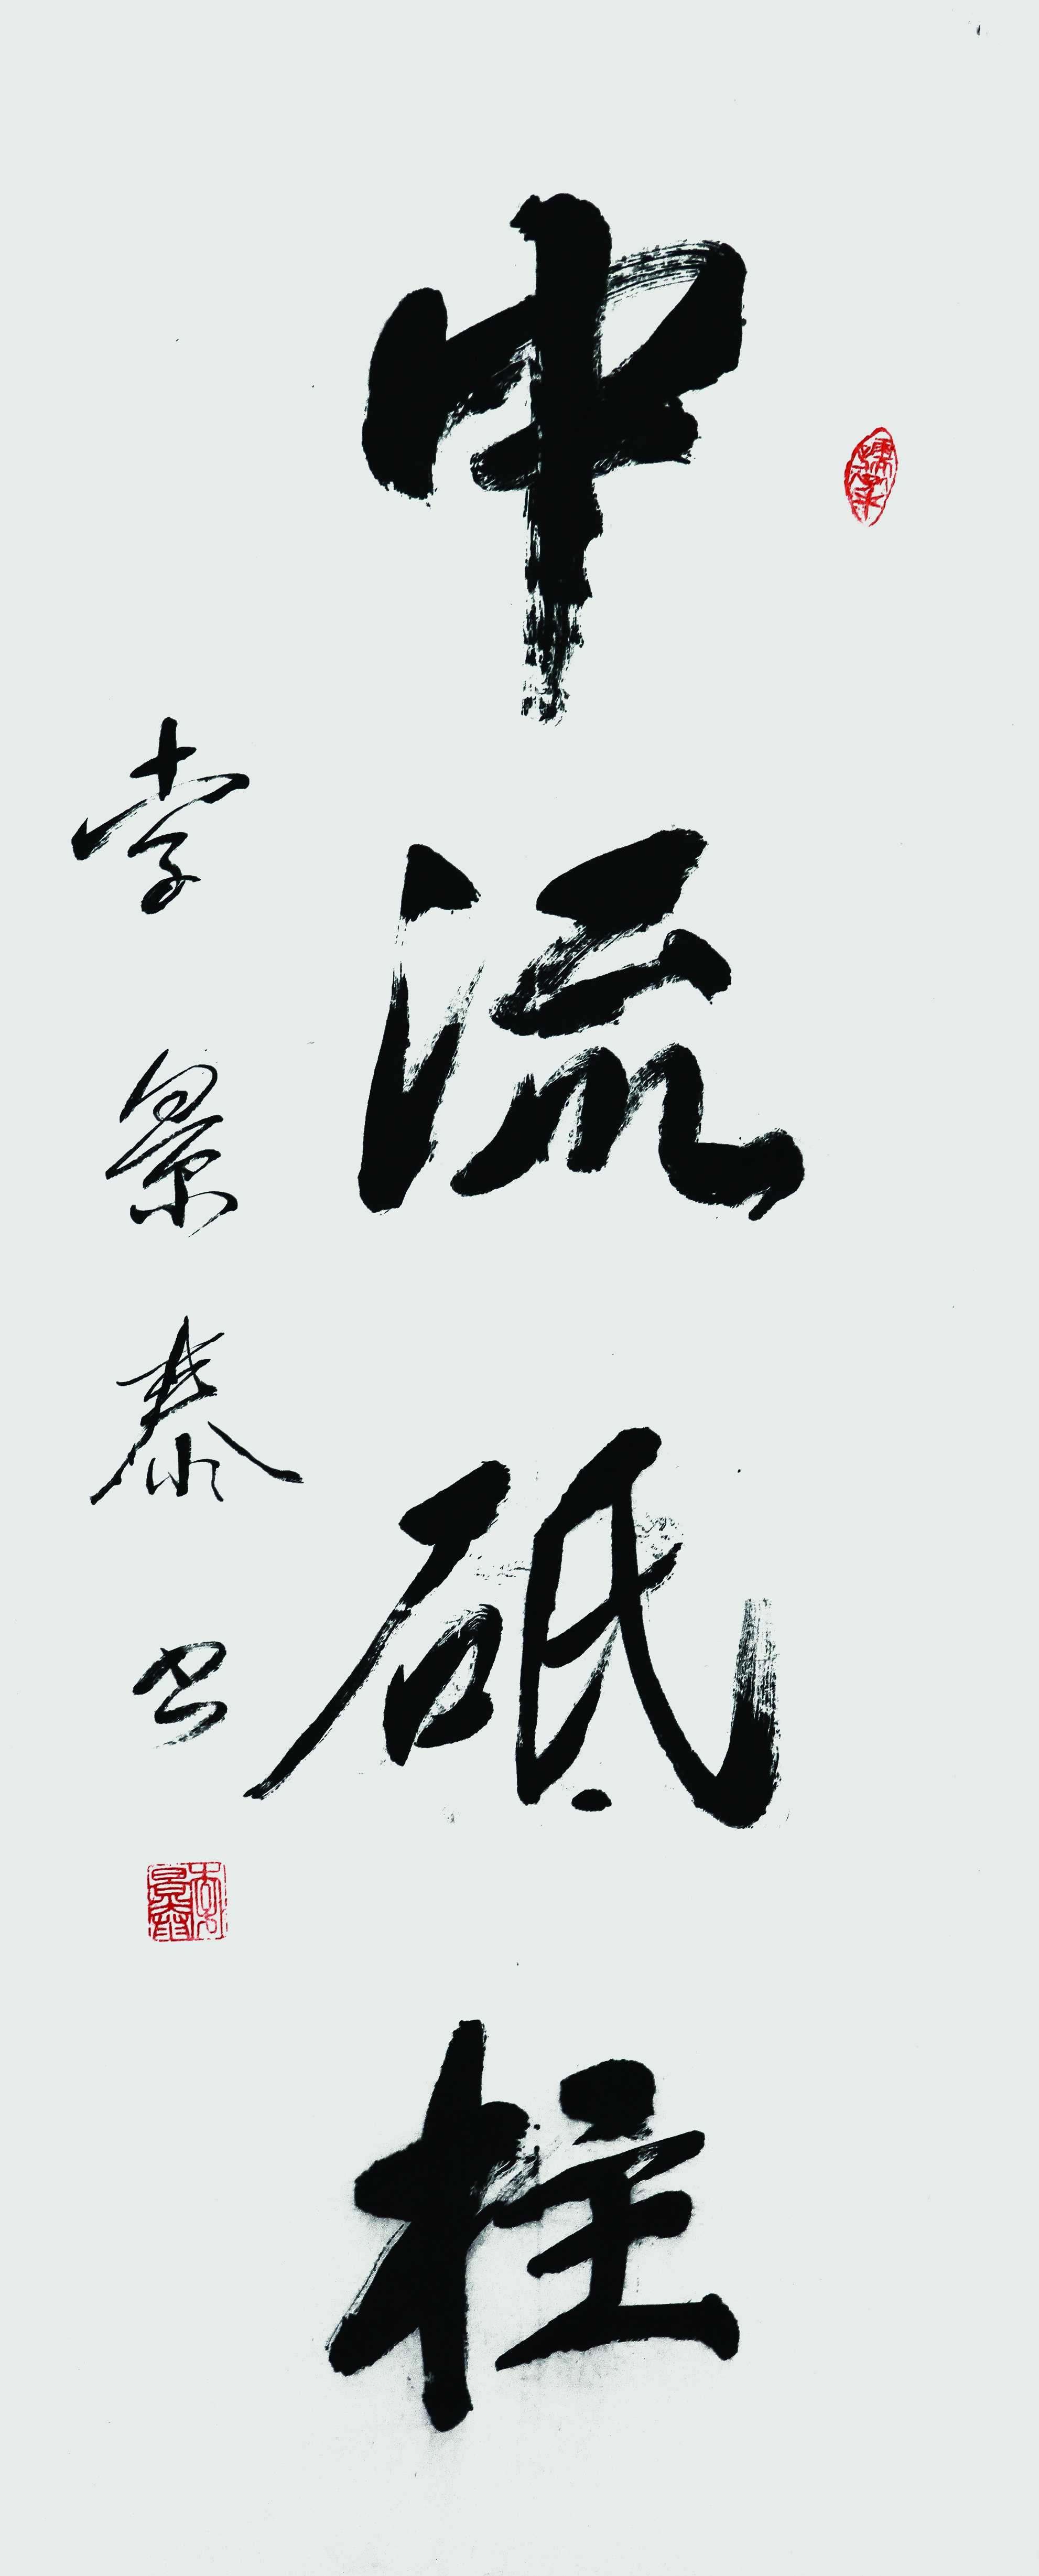 中流砥柱
李景泰书